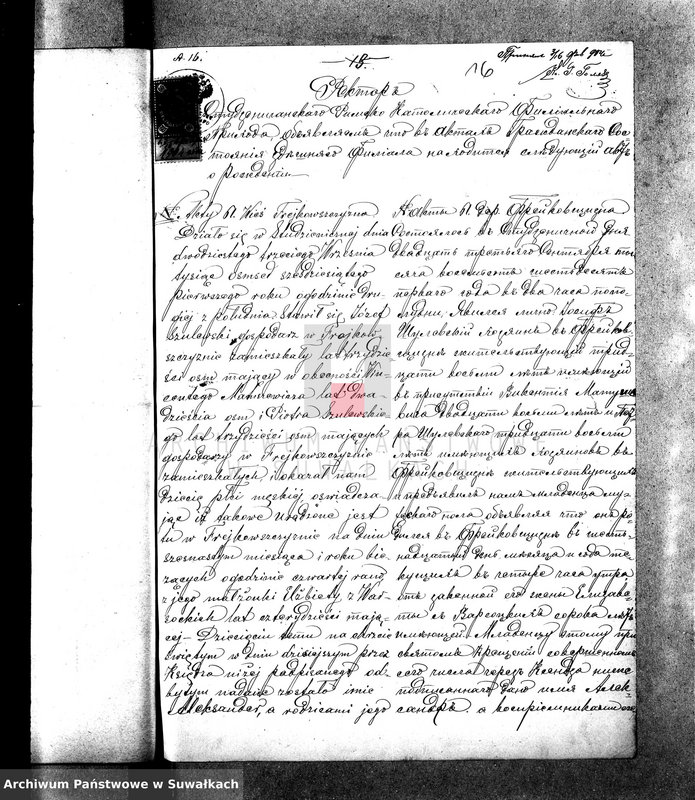 A. 16.
18.
16
Ректоръ
Студеничанскаго Римско Католическаго Филіяльнаго
Прихода, объявляетъ что въ актахъ Гражданскаго Сос-
тоянія здешняго Филіала находится слѣдующій актъ
о рожденіи
Wieś Frejkowszczyzna
Działo się w Studzienicznej dnia
dwudziestego trzeciego Września
tysiąc ośmset sześćdziesiątego
pierwszego roku o godzinie dru-
giej z południa. Stawił się Józef
Szulewski gospodarz w Frejkow
szczyznie zamieszkały lat trzydzie
ści ośm mający w obecności Win
centego Matusewicza lat dwa-
dzieścia ośm i Piotra Szulewskie
go lat trzydzieści ośm mających
gospodarzy w Frejkowszczyznie
zamieszkałych, i okazał nam
dziecię płci męskiej, oświadcza
jąc iż takowe urodzone jest
tu w Frejkowszczyznie na dniu
szesnastym miesiąca i roku bie
żących o godzinie czwartej rano
z jego małżonki Elżbiety, z War
sockich lat czterdzieści mają-
cej – Dziecięciu temu na chrzcie
świętym w dniu dzisiejszym przez
Księdza niżej podpisanego od-
bytym nadane zostało imie
Aleksander, a rodzicami jego
Фрейковщизна
Состоялось въ Студеничной дня
двадцать третьяго Сентября ты
сяча восемьсотъ шестьдесятъ
перваго года въ два часа попо-
лудни. Явился лично Іосифъ
Шулевскій хозяинъ въ Фрейков
щизнѣ жительствующій трид-
цати восьми лѣтъ имѣющій
въ присутствіи Викентія Матусе
вича двадцати восьми лѣтъ и Пет
ра Шулевскаго тридцати восьми
лѣтъ имѣющихъ хозяиновъ въ
Фрейковщизнѣ жительствующихъ
и предъявилъ намъ младенца му-
жескаго пола объявляя что онъ ро-
дился въ Фрейковщизнѣ въ шест-
надцатый день мѣсяца и года те-
кущихъ въ четыре часа утра
отъ законной его жены Елизаве
ты съ Варсоцкихъ сорока лѣтъ
имѣющей. Младенцу этому при
святомъ Крещеніи совершенномъ
сего числа черезъ Ксендза ниже
подписаннаго дано имя Алек-
сандръ. а воспріемниками его
Archiwum Państwowe w Suwałkach